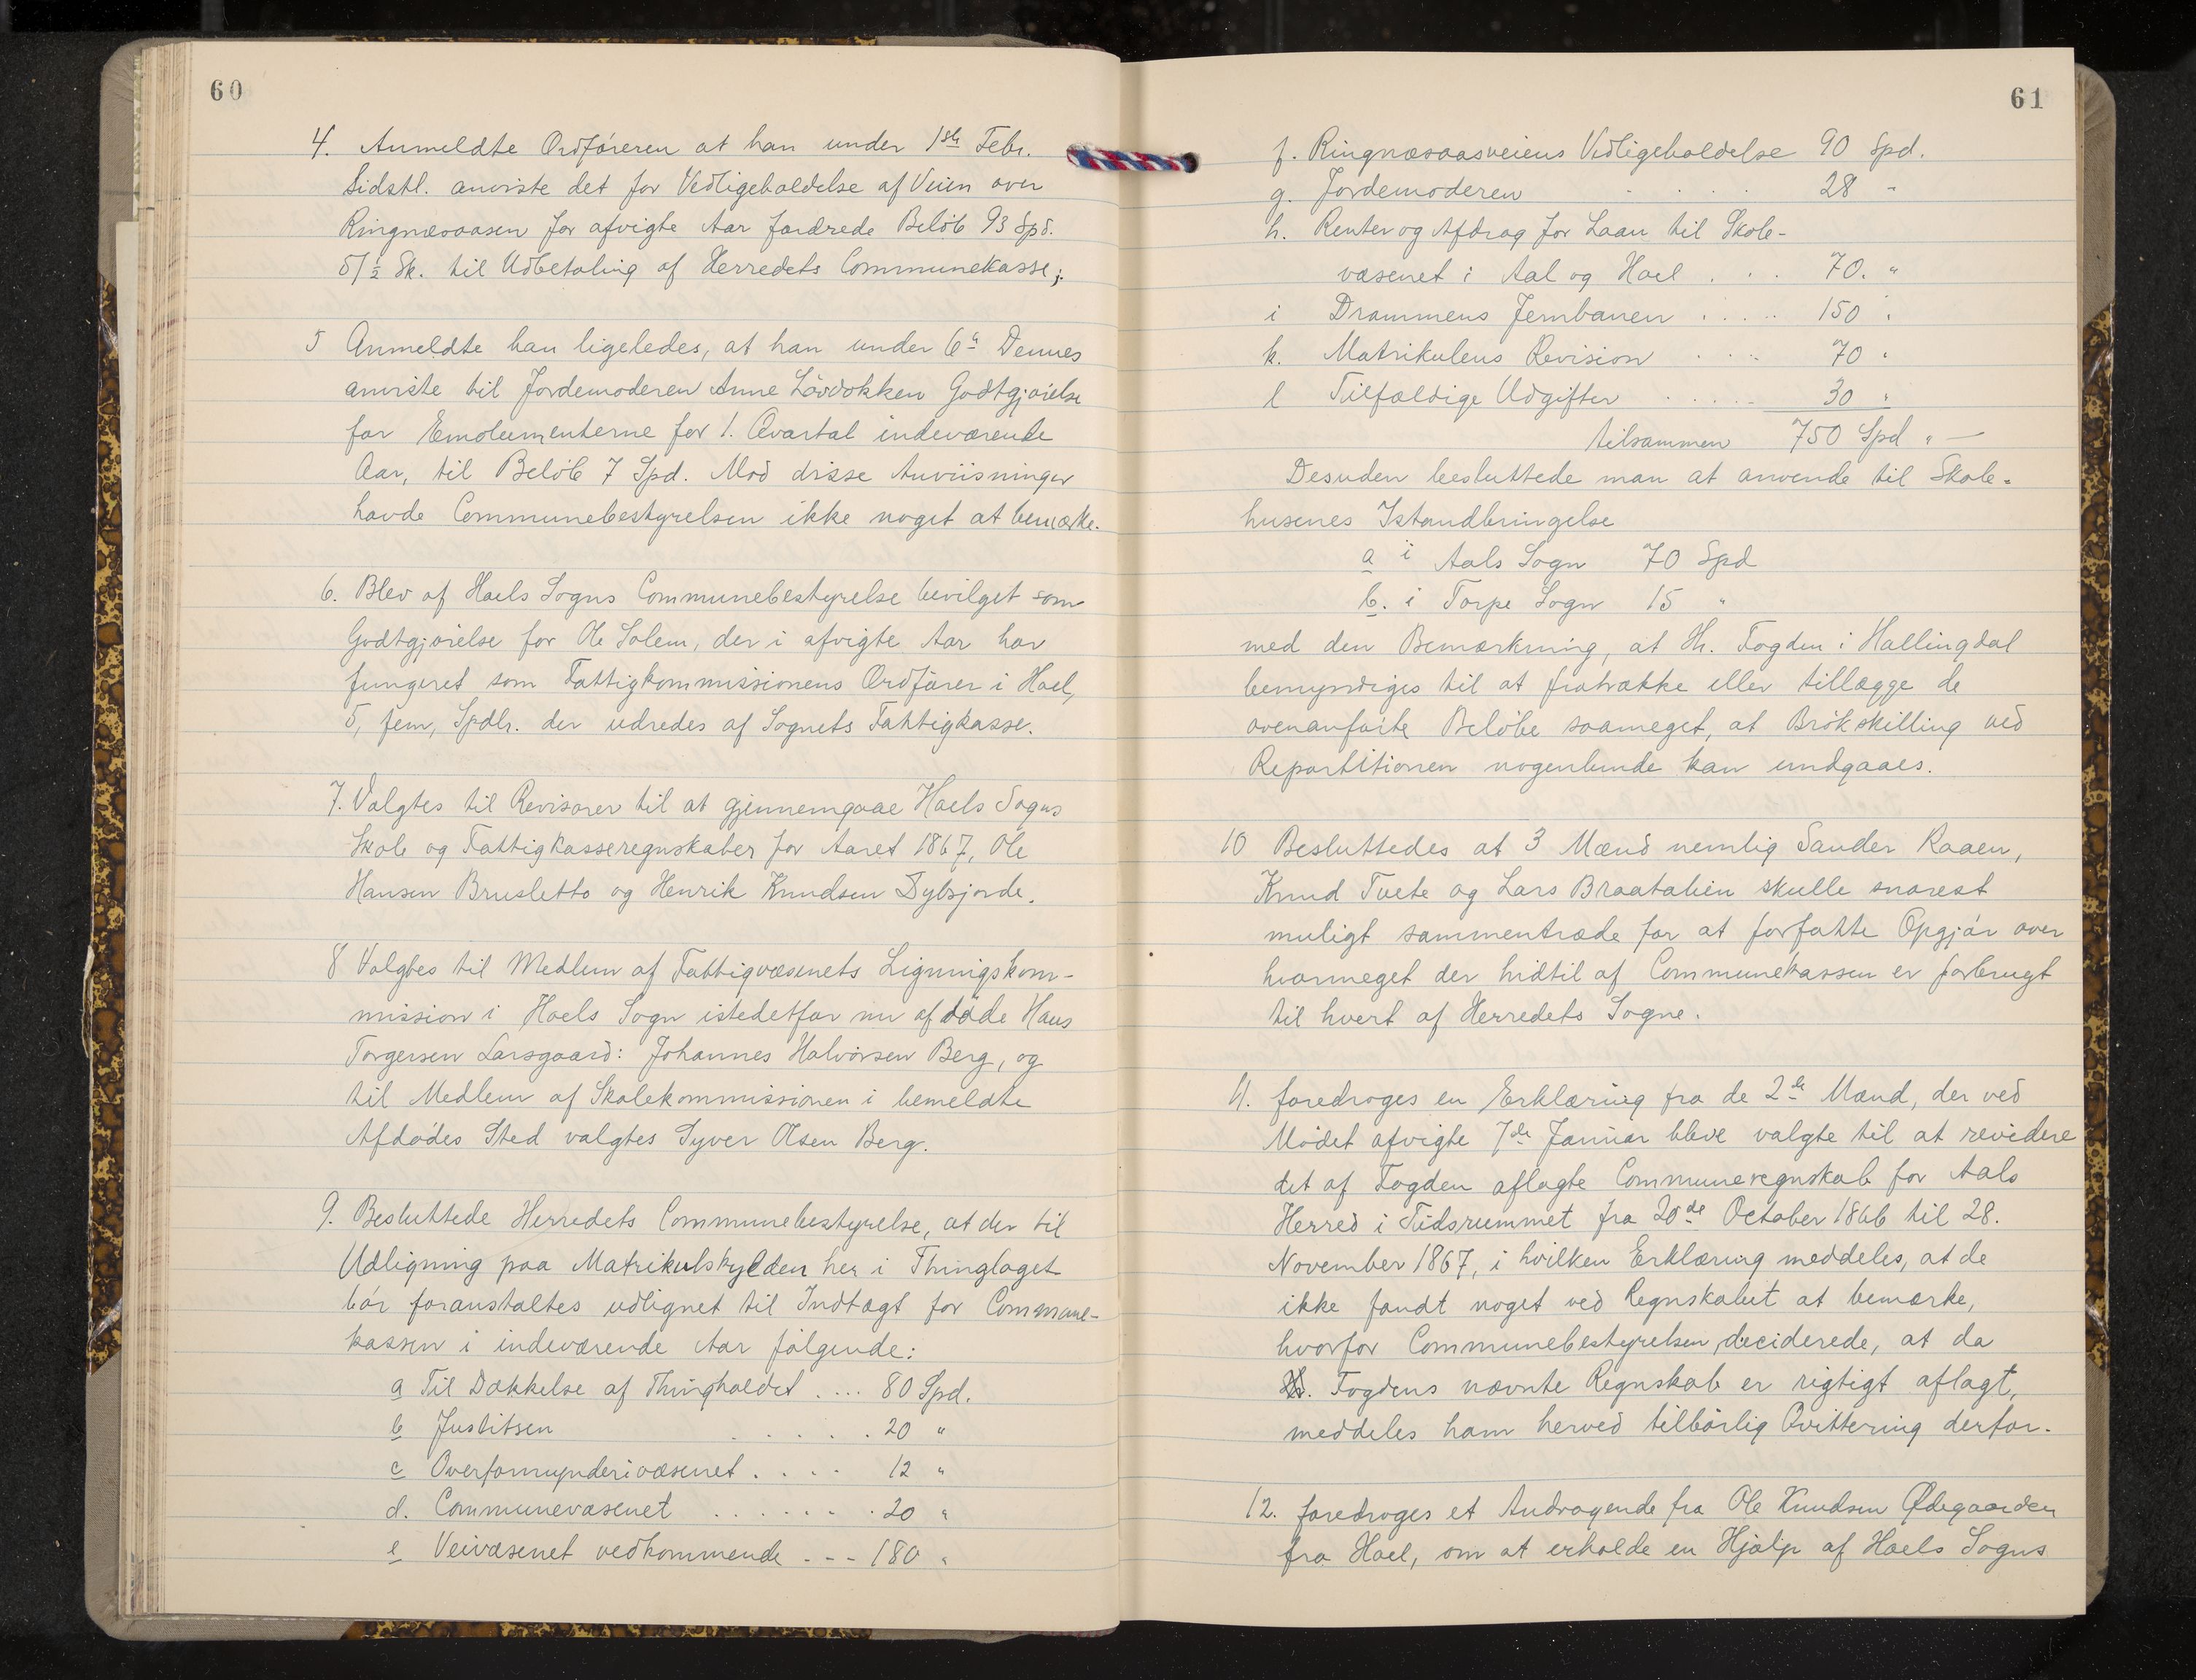 60
4. Anmeldte Ordføreren at han under 1ste Febr.
Sidstl. anviste det for Vedligeholdelse af Veien over
Ringnæsaasen for afvigte Aar fordrede Beløb 93 Spd.
51½ Sk. til Udbetaling af Herredets Communekasse;
5 Anmeldte han ligeledes, at han under 6te Dennes
anviste til Jordemoderen Anne Løvdokken Godtgjørelse
for Emolumenterne for 1. Qvartal indeværende
Aar, til Beløb 7 Spd. Mod disse Anviisninger
havde Communebestyrelsen ikke noget at bemærke.
6. Blev af Hoels Sogns Communebestyrelse bevilget som
Godtgjørelse for Ole Solem, der i afvigte Aar har
fungeret som Fattigkommissionens Ordfører i Hoel,
5, fem, Spdlr. der udredes af Sognets Fattigkasse.
7. Valgtes til Revisorer til at gjennemgaae Hoels Sogns
Skole og Fattigkasseregnskaber for Aaret 1867, Ole
Hansen Brusletto og Henrik Knudsen Sylsjorde.
8 Valgtes til Medlem af Fattigvæsenets Ligningskom-
mission i Hoels Sogn istedetfor nu afdøde Hans
Torgersen Larsgaard: Johannes Halvorsen Berg, og
til Medlem af Skolekommissionen i bemeldte
Afdødes Sted valgtes Syver Olsen Berg.
9. Besluttede Herredets Communebestyrelse, at der til
Udligning paa Matrikulskylden her i Thinglaget
bør foranstaltes udlignet til Indtægt for Commune-
kassen i indeværende Aar følgende:
a Til Dækkelse af Thingholdet .... 80 Spd.
b Justitsen ..... 20 "
c Overformynderivæsenet .... 12 "
d. Communevæsenet ....... 20 "
e Veivæsenet vedkommende --- 180 "
61
f. Ringnæsaasveiens Vedligeholdelse 90 Spd.
g. Jordemoderen .... 28 "
h. Renter og Afdrag for Laan til Skole-
væsenet i Aal og Hoel ... 70. "
i Drammens Jernbanen ..... 150 "
k. Matrikulens Revision .... 70 "
l Tilfældige Udgifter ..... 30 "
tilsammen 750 Spd " —
Desuden besluttede man at anvende til Skole-
husenes Istandbringelse
a i Aals Sogn 70 Spd
b. i Torpe Sogn 15 "
med den Bemærkning, at Hr. Fogden i Hallingdal
bemyndiges til at fratrække eller tillægge de
ovenanførte Beløbe saameget, at Brøkskilling ved
Repartitionen nogenlunde kan undgaaes.
10 Besluttedes at 3 Mænd nemlig Sander Raaen,
Knud Tvete og Lars Braatalien skulle snarest
muligt sammentræde for at forfatte Opgjør over
hvormeget der hidtil af Communekassen er forbrugt
til hvert af Herredets Sogne.
11. foredroges en Erklæring fra de 2de Mænd, der ved
Mødet afvigte 7de Januar bleve valgte til at revidere
det af Fogden aflagte Communeregnskab for Aals
Herred i Tidsrummet fra 20de October 1866 til 28.
November 1867, i hvilken Erklæring meddeles, at de
ikke fandt noget ved Regnskabet at bemærke,
hvorfor Communebestyrelsen deciderede, at da
Hr. Fogdens nævnte Regnskab er rigtigt aflagt,
meddeles ham herved tilbørlig Qvittering derfor.
12. foredroges et Andragende fra Ole Knudsen Ødegaarden
fra Hoel, om at erholde en Hjælp af Hoels Sogns